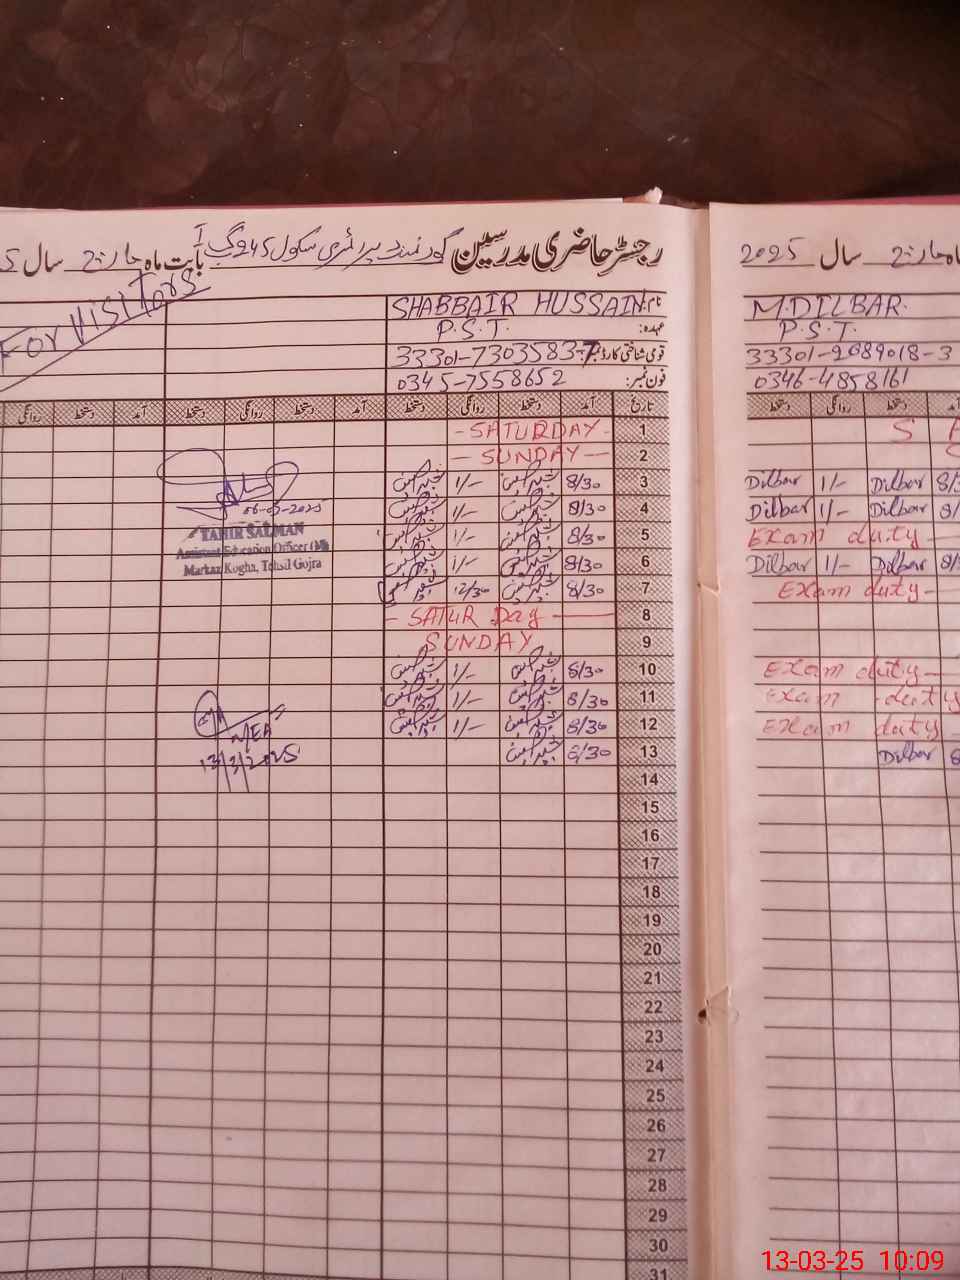 رجسٹر حاضری مدرسین گورنمنٹ پرائمری سکول 245 گ ب بابت ماہ مارچ سال 5
2025 سال مارچ ماہ
FOR VISITORS
نام: SHABBAIR HUSSAIN
عہدہ: P.S.T.
قومی شناختی کارڈ نمبر: 33301-7303583-7
فون نمبر: 0345-7558652
M.DILBAR.
P.S.T.
33301-2689018-3
0346-4858161
تاریخ آمد دستخط روانگی دستخط آمد دستخط روانگی دستخط آمد دستخط روانگی
روانگی دستخط
1 -SATURDAY- S
2 -SUNDAY-
3 8/30 شبیر حسین 1/- شبیر حسین Dilbar 1/- Dilbar
4 8/30 شبیر حسین 1/- شبیر حسین Dilbar 1/- Dilbar
5 8/30 شبیر حسین 1/- شبیر حسین Exam duty-
6 8/30 شبیر حسین 1/- شبیر حسین Dilbar 1/- Dilbar
7 8/30 شبیر حسین 12/30 شبیر حسین Exam duty-
8 - SATUR Day -
9 SUNDAY
10 8/30 شبیر حسین 1/- شبیر حسین Exam duty-
11 8/30 شبیر حسین 1/- شبیر حسین Exam duty
12 8/30 شبیر حسین 1/- شبیر حسین Exam duty-
13 8/30 شبیر حسین Dilbar
14
15
16
17
18
19
20
21
22
23
24
25
26
27
28
29
30
31
06-03-2025
TAHIR SALMAN
Assistant Education Officer (M)
Markaz Kogha, Tehsil Gojra
MEA
13/3/2025
13-03-25 10:09